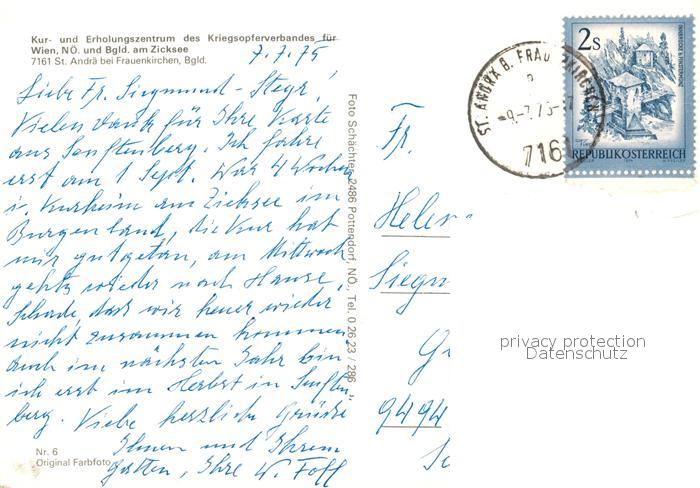 Kur- und Erholungszentrum des Kriegsopferverbandes für
Wien, NÖ. und Bgld. am Zicksee
7161 St. Andrä bei Frauenkirchen, Bgld.
7.7.75
Liebe Fr. Siegmund - Steyr!
Vielen Dank für Ihre Karte
aus Senftenberg. Ich fahre
erst am 1 Sept. War 4 Wochen
i. Kurheim am Zicksee im
Burgenland, die Kur hat
mir gutgetan, am Mittwoch
gehts wieder nach Hause,
Schade, daß wir heuer wieder
nicht zusammen kommen,
auch im nächsten Jahr bin
ich erst im Herbst in Senften-
berg. Viele herzliche Grüße
Ihnen und Ihrem
Gatten, Ihre W.
Nr. 6
Original Farbfoto
Foto Schächter, 2486 Pottendorf, NÖ., Tel. 0 26 23 / 286
ST. ANDRÄ B. FRAUENKIRCHEN
-9.-7.75-
7161
2s
REPUBLIK ÖSTERREICH
Fr.
Helen
Siegm
9494
privacy protection
Datenschutz